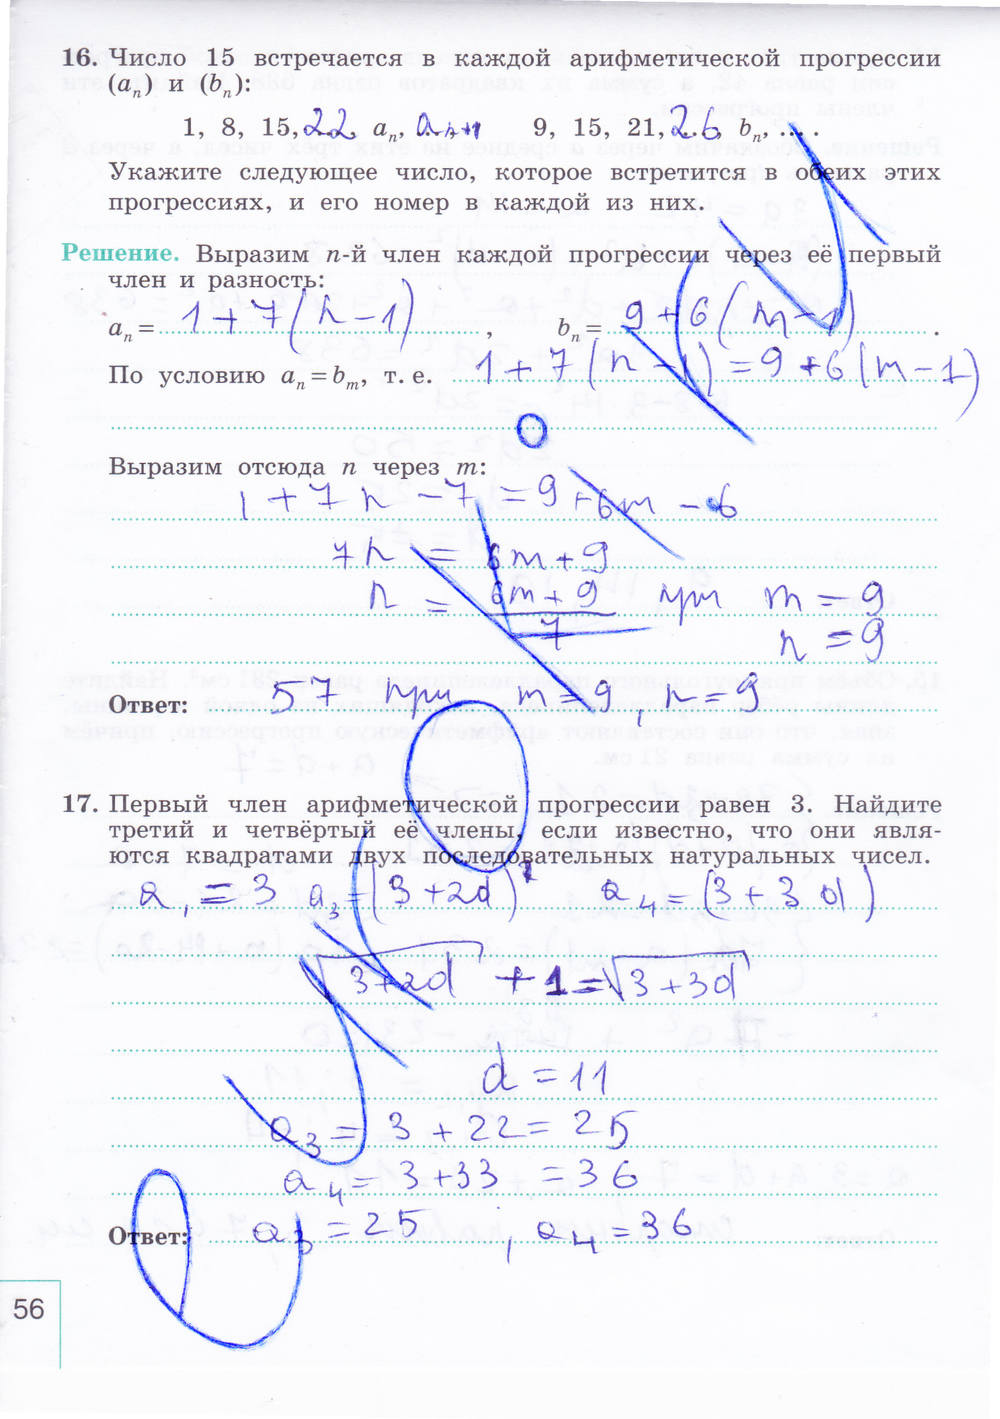 16. Число 15 встречается в каждой арифметической прогрессии
(aₙ) и (bₙ):
1, 8, 15, 22, aₙ, aₙ₊₁ 9, 15, 21, 26, bₙ, ... .
Укажите следующее число, которое встретится в обеих этих
прогрессиях, и его номер в каждой из них.
Решение. Выразим n-й член каждой прогрессии через её первый
член и разность:
aₙ = 1 + 7(n - 1), bₙ = 9 + 6(m - 1).
По условию aₙ = bₘ, т. е. 1 + 7(n - 1) = 9 + 6(m - 1)
Выразим отсюда n через m:
1 + 7n - 7 = 9 + 6m - 6
7n = 6m + 9
n = (6m + 9)/7 при m = 9
n = 9
Ответ: 57 при m = 9, n = 9
17. Первый член арифметической прогрессии равен 3. Найдите
третий и четвёртый её члены, если известно, что они явля-
ются квадратами двух последовательных натуральных чисел.
a₁ = 3 a₃ = (3 + 2d) a₄ = (3 + 3d)
√(3 + 2d) + 1 = √(3 + 3d)
d = 11
a₃ = 3 + 22 = 25
a₄ = 3 + 33 = 36
Ответ: a₃ = 25, a₄ = 36
56